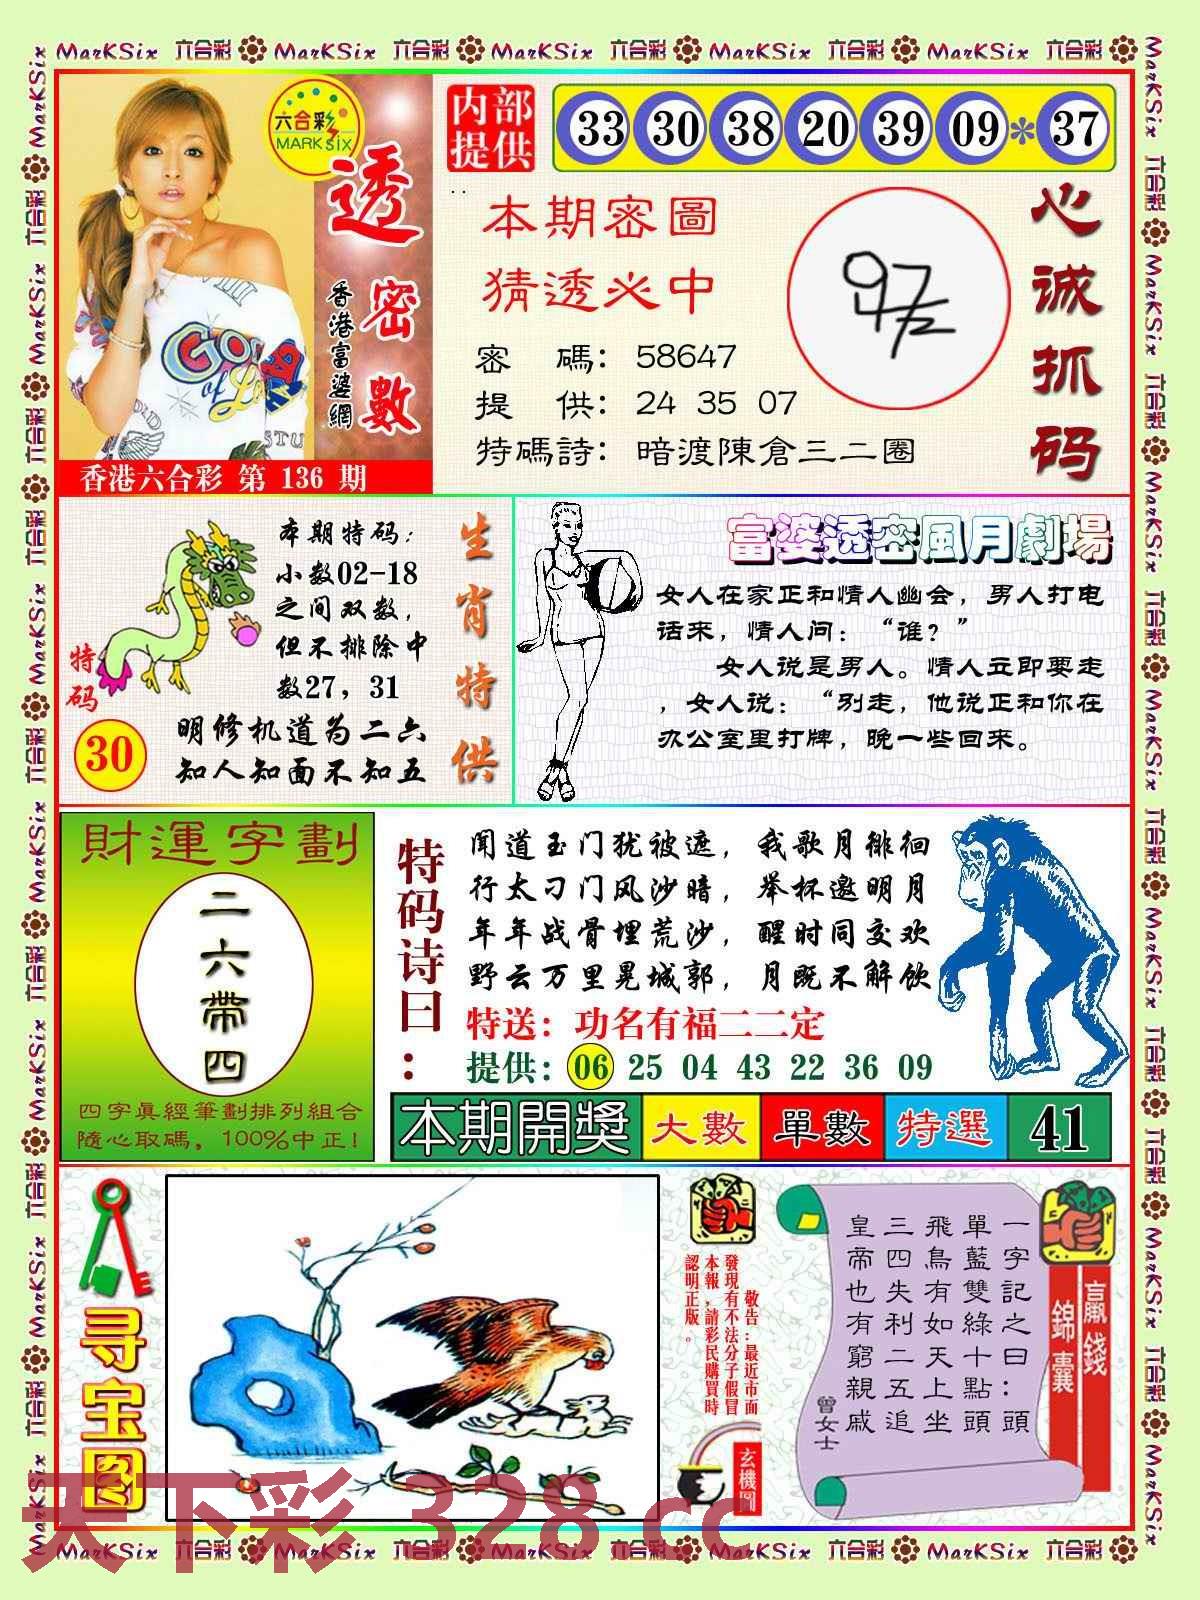 MarKSix 六合彩 MarKSix 六合彩 MarKSix 六合彩 MarKSix 六合彩 MarKSix 六合彩
六合彩
MARK SIX
透密數
香港富婆網
香港六合彩 第 136 期
内部提供
33 30 38 20 39 09 * 37
本期密圖
猜透必中
密 碼: 58647
提 供: 24 35 07
特碼詩: 暗渡陳倉三二圈
心诚抓码
本期特码:
小数02-18
之间双数,
但不排除中
数27, 31
特码
30
明修机道为二六
知人知面不知五
生肖特供
富婆透密風月劇場
女人在家正和情人幽会，男人打电
话来，情人问：“谁？”
女人说是男人。情人立即要走
，女人说：“别走，他说正和你在
办公室里打牌，晚一些回来。
財運字劃
二六帶四
四字真經筆劃排列組合
隨心取碼, 100%中正!
特码诗曰:
闻道玉门犹被遮，我歌月徘徊
行太刁门风沙暗，举杯邀明月
年年战骨埋荒沙，醒时同交欢
野云万里晃城郭，月既不解饮
特送: 功名有福二二定
提供: 06 25 04 43 22 36 09
本期開獎 大數 單數 特選 41
寻宝图
敬告:最近市面
發現有不法分子假冒
本報,請彩民購買時
認明正版。
玄機圖
一字記之曰:頭
單藍雙綠十點頭
飛鳥有如天上坐
三四失利二五追
皇帝也有窮親戚
曾女士
贏錢
錦囊
天下彩 328.cc
MarKSix 六合彩 MarKSix 六合彩 MarKSix 六合彩 MarKSix 六合彩 MarKSix 六合彩